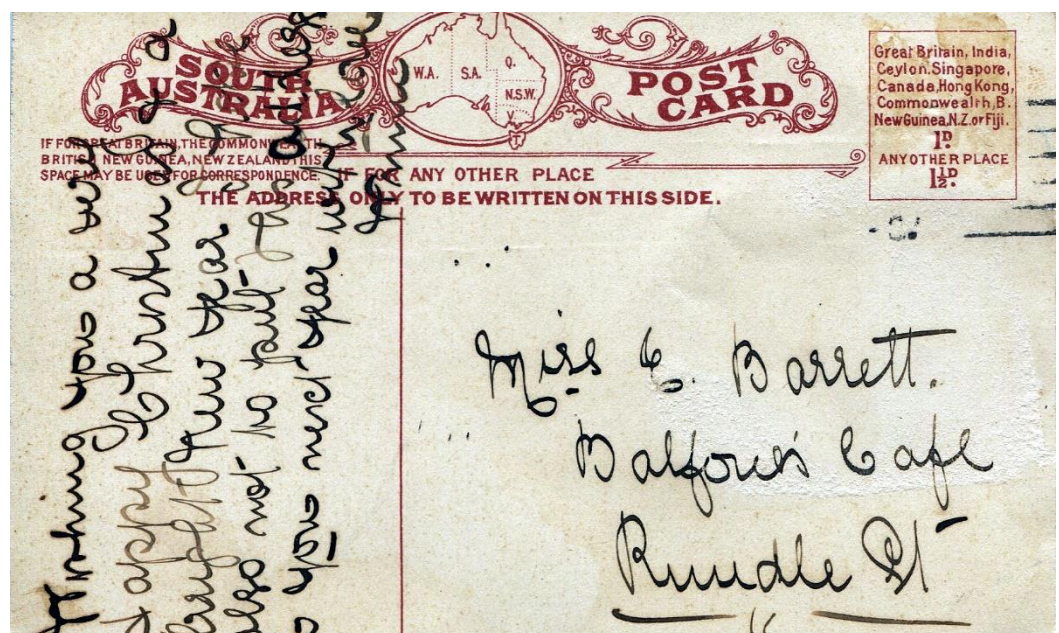 SOUTH
AUSTRALIA
W.A. S.A. Q.
N.S.W.
V.
POST
CARD
Great Britain, India,
Ceylon, Singapore,
Canada, Hong Kong,
Commonwealth, B.
New Guinea, N.Z. or Fiji.
1D.
ANY OTHER PLACE
1½D.
IF FOR GREAT BRITAIN, THE COMMONWEALTH
BRITISH NEW GUINEA, NEW ZEALAND THIS
SPACE MAY BE USED FOR CORRESPONDENCE.
IF FOR ANY OTHER PLACE
THE ADDRESS ONLY TO BE WRITTEN ON THIS SIDE.
Wishing you a very
Happy Christmas & a
Bright New Year
also not to put
you next year
Miss E. Barrett.
Balfour's Cafe
Rundle St